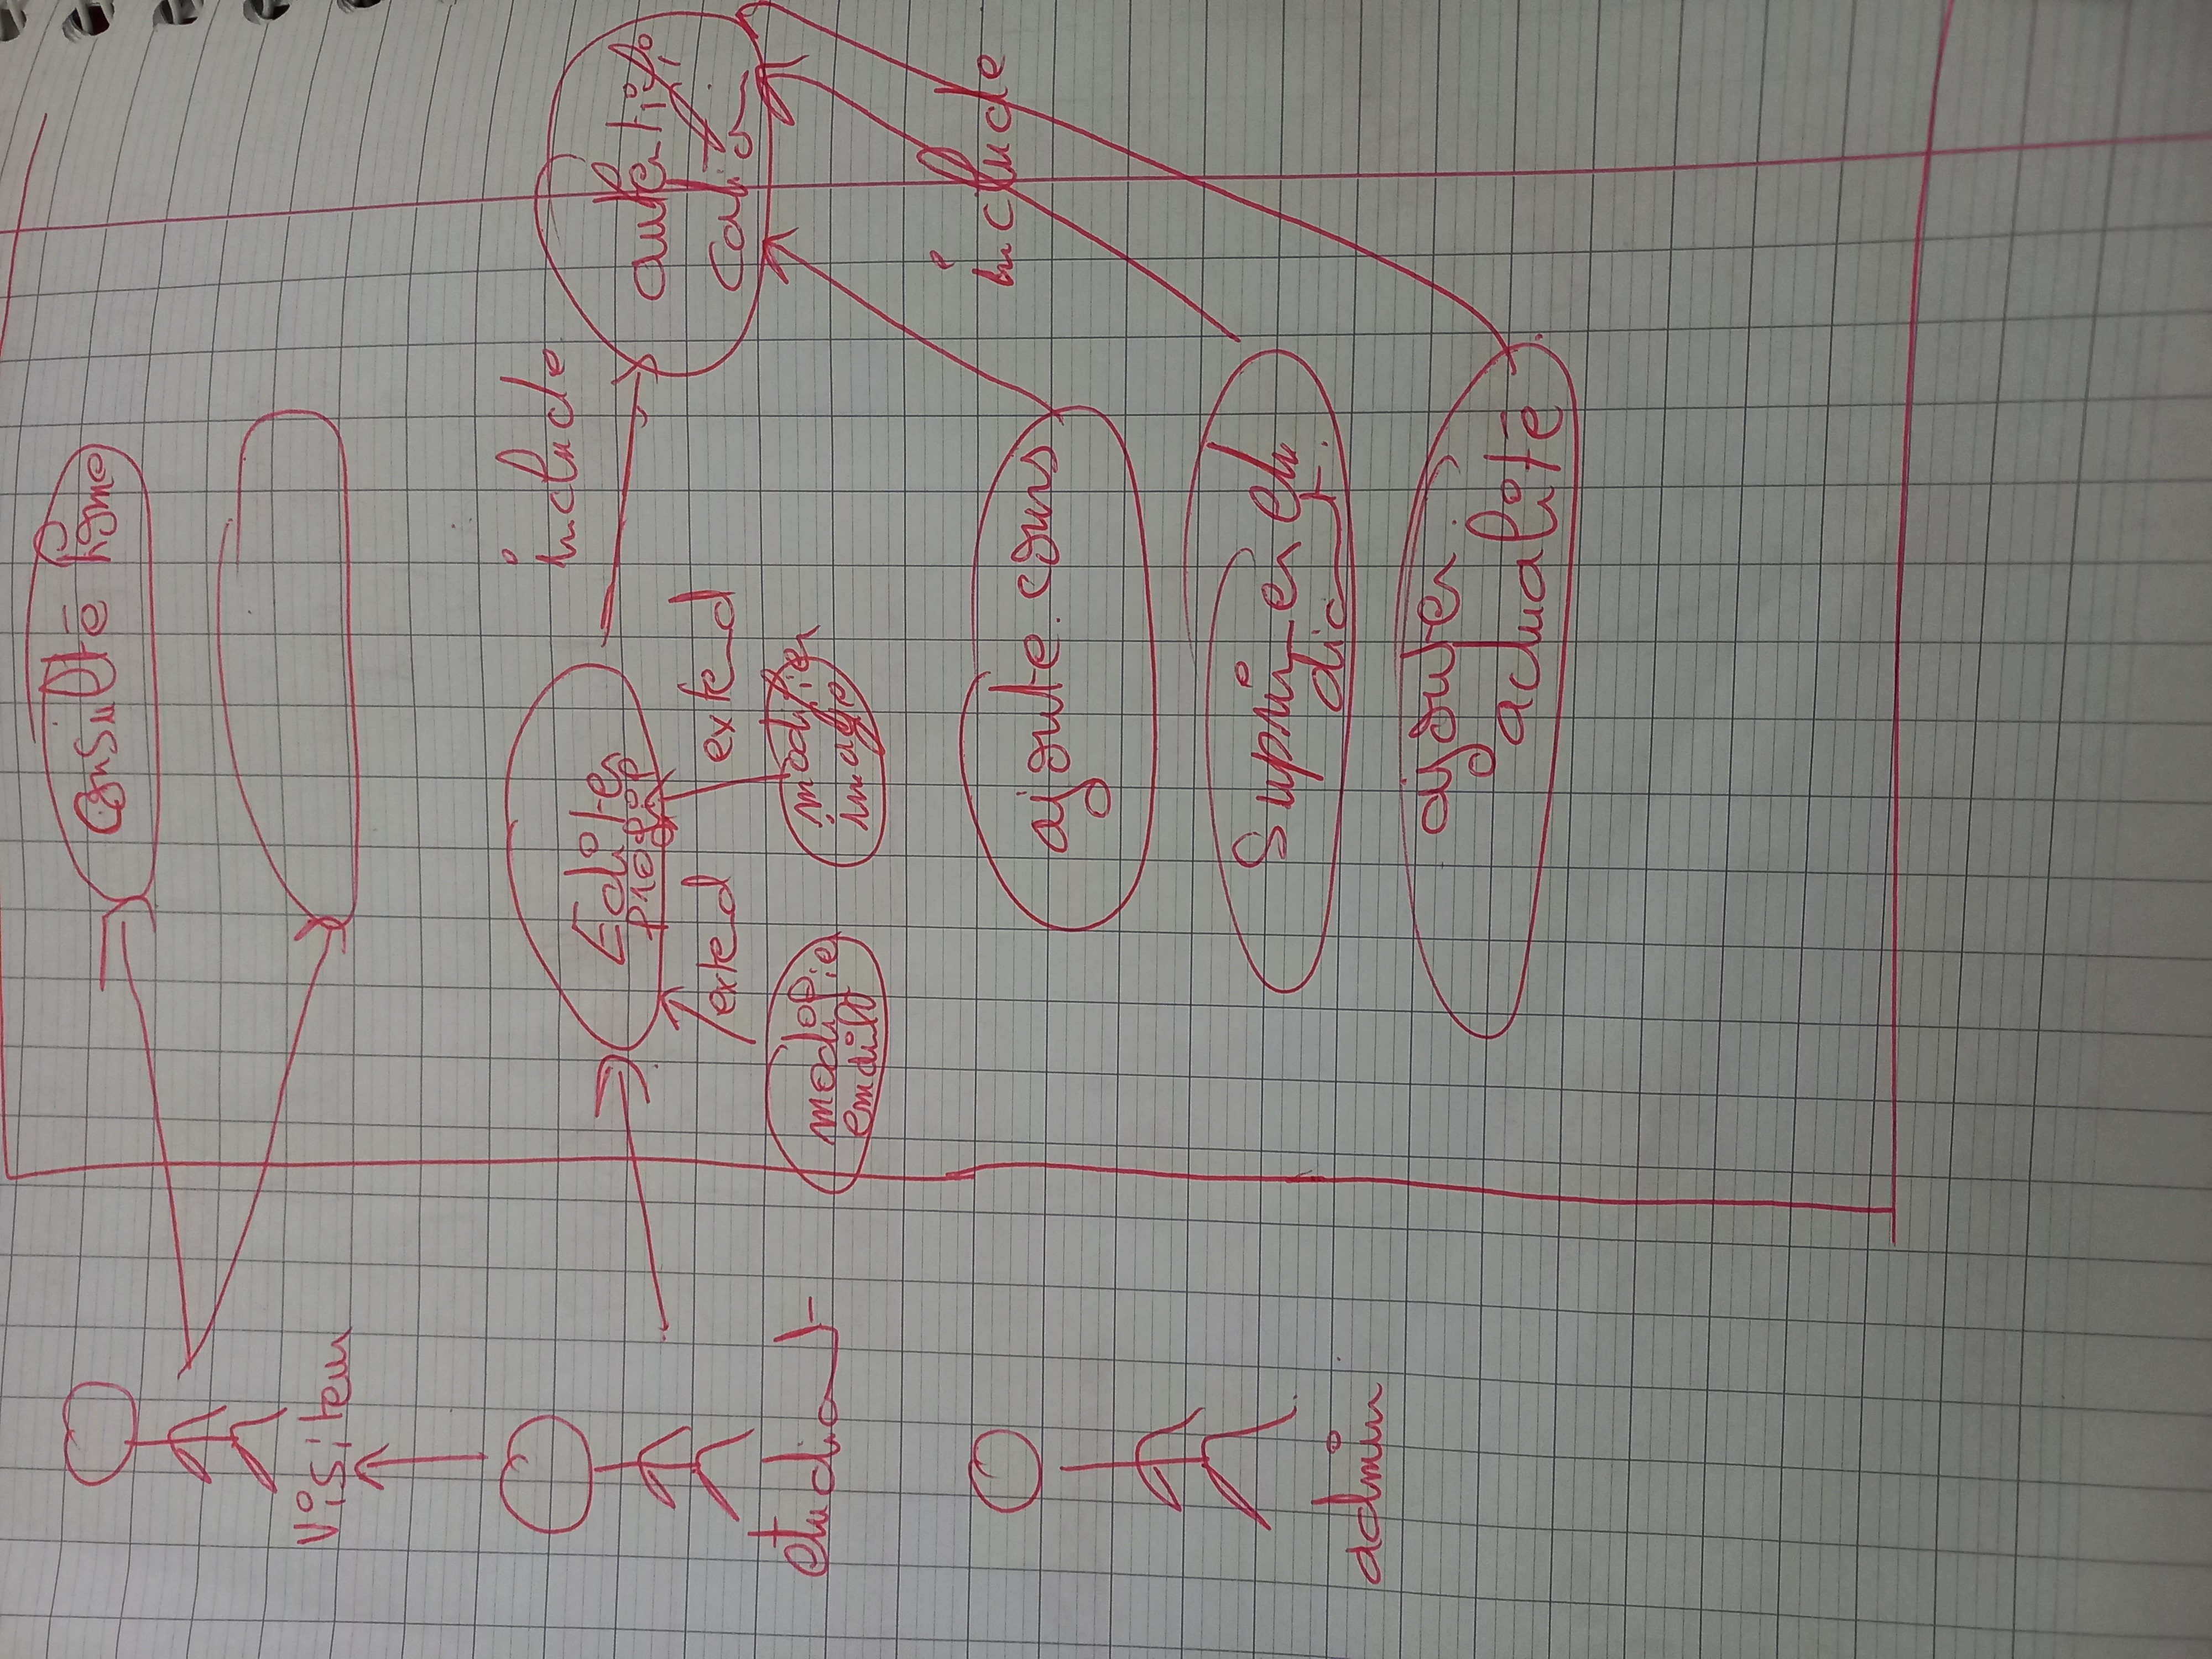 consulté home
visiteur
include
Editer
profil
autentifi
cation
exted
extend
etudiant
modifie
email
modifier
image
include
ajoute cours
Suprimer etu
diant.
admin
ajouter
actualité